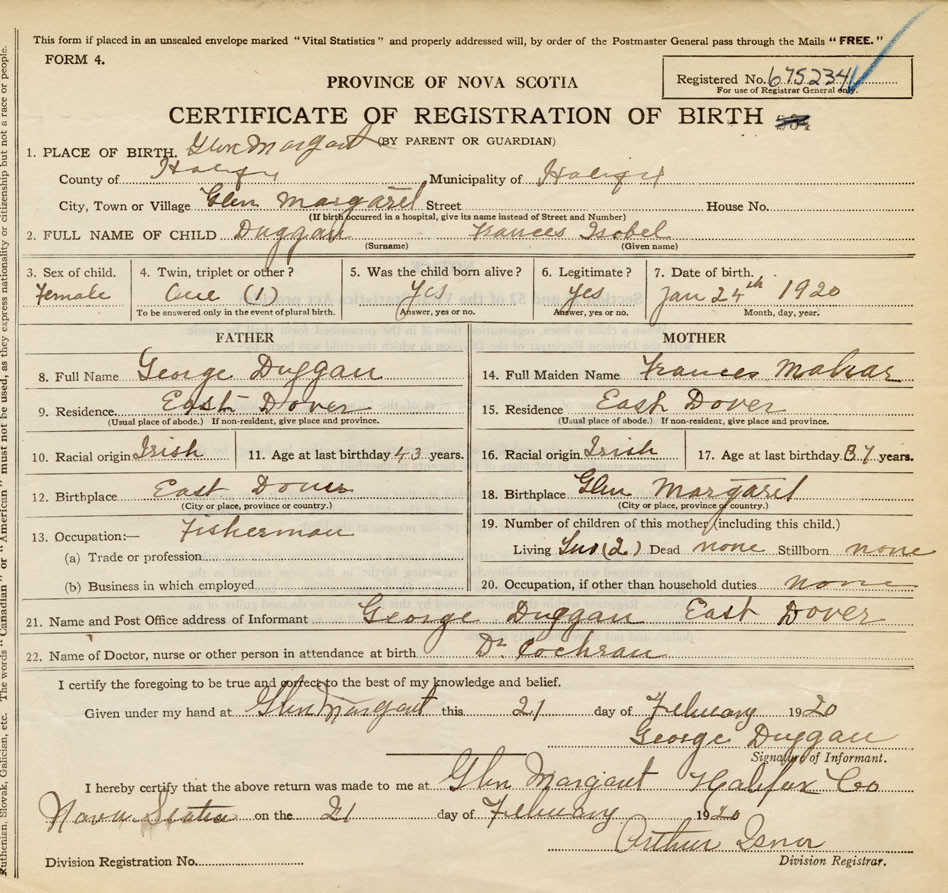 This form if placed in an unsealed envelope marked "Vital Statistics" and properly addressed will, by order of the Postmaster General pass through the Mails "FREE."
FORM 4.
PROVINCE OF NOVA SCOTIA
Registered No. 675234
For use of Registrar General only.
CERTIFICATE OF REGISTRATION OF BIRTH
(BY PARENT OR GUARDIAN)
1. PLACE OF BIRTH. Glen Margaret
County of Halifax Municipality of Halifax
City, Town or Village Glen Margaret Street House No.
(If birth occurred in a hospital, give its name instead of Street and Number)
2. FULL NAME OF CHILD Duggan Frances Isobel
(Surname) (Given name)
3. Sex of child. 4. Twin, triplet or other? 5. Was the child born alive? 6. Legitimate? 7. Date of birth.
Female One (1) Yes Yes Jan 24th 1920
To be answered only in the event of plural birth. Answer, yes or no. Answer, yes or no. Month, day, year.
FATHER MOTHER
8. Full Name George Duggan 14. Full Maiden Name Frances Mahar
9. Residence East Dover 15. Residence East Dover
(Usual place of abode.) If non-resident, give place and province. (Usual place of abode.) If non-resident, give place and province.
10. Racial origin Irish 11. Age at last birthday 43 years. 16. Racial origin Irish 17. Age at last birthday 37 years.
12. Birthplace East Dover 18. Birthplace Glen Margaret
(City or place, province or country.) (City or place, province or country.)
13. Occupation:— Fisherman 19. Number of children of this mother (including this child.)
(a) Trade or profession Living Two (2) Dead none Stillborn none
(b) Business in which employed 20. Occupation, if other than household duties none
21. Name and Post Office address of Informant George Duggan East Dover
22. Name of Doctor, nurse or other person in attendance at birth Dr Cochran
I certify the foregoing to be true and correct to the best of my knowledge and belief.
Given under my hand at Glen Margaret this 21 day of February 1920
George Duggan
Signature of Informant.
I hereby certify that the above return was made to me at Glen Margaret Halifax Co
Nova Scotia on the 21 day of February 1920
Arthur Isnor
Division Registrar.
Division Registration No.
Ruthenian, Slovak, Galician, etc. The words "Canadian" or "American" must not be used, as they express nationality or citizenship but not a race or people.